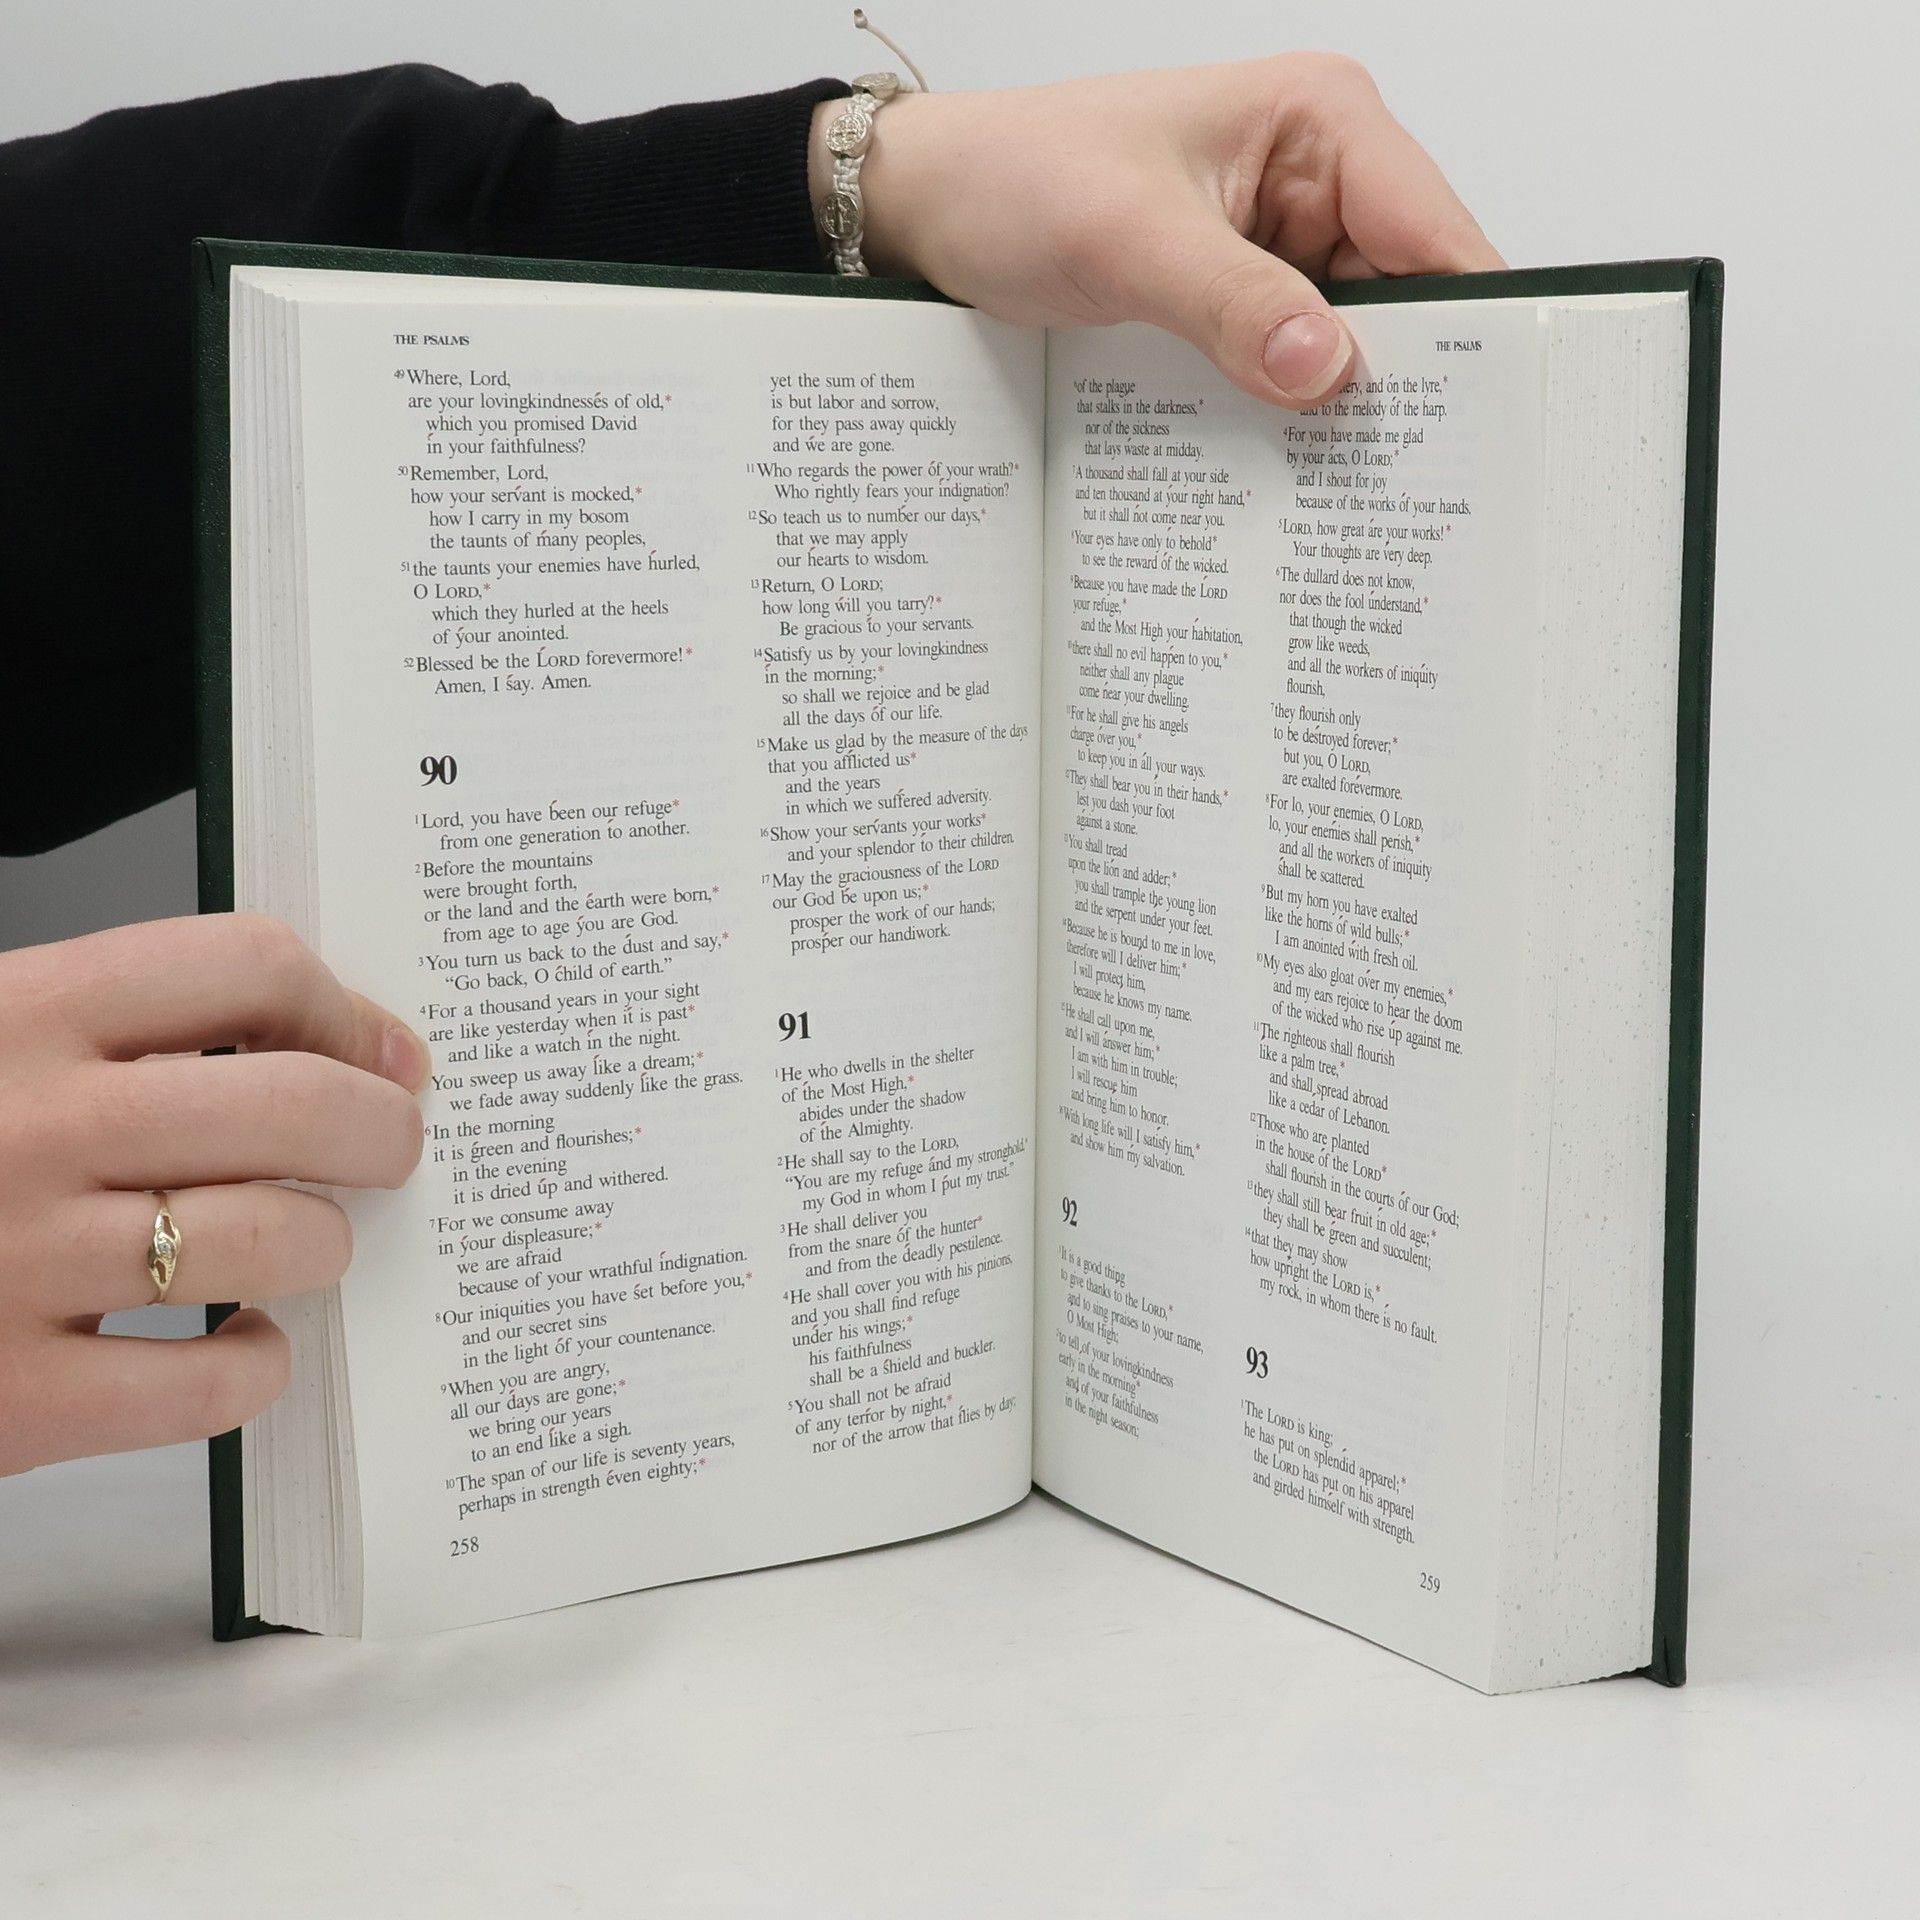 THE PSALMS
49 Where, Lord,
are your lovingkindnesses of old,*
which you promised David
in your faithfulness?
50 Remember, Lord,
how your servant is mocked,*
how I carry in my bosom
the taunts of many peoples,
51 the taunts your enemies have hurled,
O LORD,*
which they hurled at the heels
of your anointed.
52 Blessed be the LORD forevermore!*
Amen, I say. Amen.
90
1 Lord, you have been our refuge*
from one generation to another.
2 Before the mountains
were brought forth,
or the land and the earth were born,*
from age to age you are God.
3 You turn us back to the dust and say,*
“Go back, O child of earth.”
4 For a thousand years in your sight
are like yesterday when it is past*
and like a watch in the night.
You sweep us away like a dream;*
we fade away suddenly like the grass.
6 In the morning
it is green and flourishes;*
in the evening
it is dried up and withered.
7 For we consume away
in your displeasure;*
we are afraid
because of your wrathful indignation.
8 Our iniquities you have set before you,*
and our secret sins
in the light of your countenance.
9 When you are angry,
all our days are gone;*
we bring our years
to an end like a sigh.
10 The span of our life is seventy years,
perhaps in strength even eighty;*
258
yet the sum of them
is but labor and sorrow,
for they pass away quickly
and we are gone.
11 Who regards the power of your wrath?*
Who rightly fears your indignation?
12 So teach us to number our days,*
that we may apply
our hearts to wisdom.
13 Return, O LORD;
how long will you tarry?*
Be gracious to your servants.
14 Satisfy us by your lovingkindness
in the morning;*
so shall we rejoice and be glad
all the days of our life.
15 Make us glad by the measure of the days
that you afflicted us*
and the years
in which we suffered adversity.
16 Show your servants your works*
and your splendor to their children.
17 May the graciousness of the LORD
our God be upon us;*
prosper the work of our hands;
prosper our handiwork.
91
1 He who dwells in the shelter
of the Most High,*
abides under the shadow
of the Almighty.
2 He shall say to the LORD,
“You are my refuge and my stronghold,*
my God in whom I put my trust.”
3 He shall deliver you
from the snare of the hunter*
and from the deadly pestilence.
4 He shall cover you with his pinions,
and you shall find refuge
under his wings;*
his faithfulness
shall be a shield and buckler.
5 You shall not be afraid
of any terror by night,*
nor of the arrow that flies by day;
THE PSALMS
6 of the plague
that stalks in the darkness,*
nor of the sickness
that lays waste at midday.
7 A thousand shall fall at your side
and ten thousand at your right hand,*
but it shall not come near you.
8 Your eyes have only to behold*
to see the reward of the wicked.
9 Because you have made the LORD
your refuge,*
and the Most High your habitation,
10 there shall no evil happen to you,*
neither shall any plague
come near your dwelling.
11 For he shall give his angels
charge over you,*
to keep you in all your ways.
12 They shall bear you in their hands,*
lest you dash your foot
against a stone.
13 You shall tread
upon the lion and adder;*
you shall trample the young lion
and the serpent under your feet.
14 Because he is bound to me in love,
therefore will I deliver him;*
I will protect him,
because he knows my name.
15 He shall call upon me,
and I will answer him;*
I am with him in trouble;
I will rescue him
and bring him to honor.
16 With long life will I satisfy him,*
and show him my salvation.
92
1 It is a good thing
to give thanks to the LORD,*
and to sing praises to your name,
O Most High;
2 to tell of your lovingkindness
early in the morning*
and of your faithfulness
in the night season;
and on the lyre,*
and to the melody of the harp.
4 For you have made me glad
by your acts, O LORD;*
and I shout for joy
because of the works of your hands.
5 LORD, how great are your works!*
Your thoughts are very deep.
6 The dullard does not know,
nor does the fool understand,*
that though the wicked
grow like weeds,
and all the workers of iniquity
flourish,
7 they flourish only
to be destroyed forever;*
but you, O LORD,
are exalted forevermore.
8 For lo, your enemies, O LORD,
lo, your enemies shall perish,*
and all the workers of iniquity
shall be scattered.
9 But my horn you have exalted
like the horns of wild bulls;*
I am anointed with fresh oil.
10 My eyes also gloat over my enemies,*
and my ears rejoice to hear the doom
of the wicked who rise up against me.
11 The righteous shall flourish
like a palm tree,*
and shall spread abroad
like a cedar of Lebanon.
12 Those who are planted
in the house of the LORD*
shall flourish in the courts of our God;
13 they shall still bear fruit in old age;*
they shall be green and succulent;
14 that they may show
how upright the LORD is,*
my rock, in whom there is no fault.
93
1 The LORD is king;
he has put on splendid apparel;*
the LORD has put on his apparel
and girded himself with strength.
259